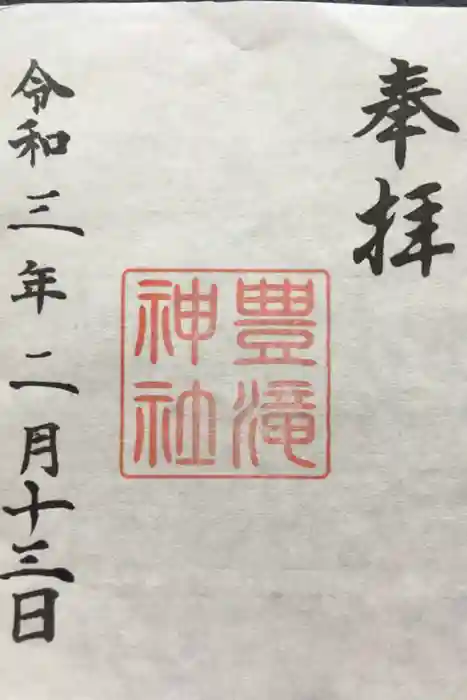 奉拝
豊滝
神社
令和三年二月十三日